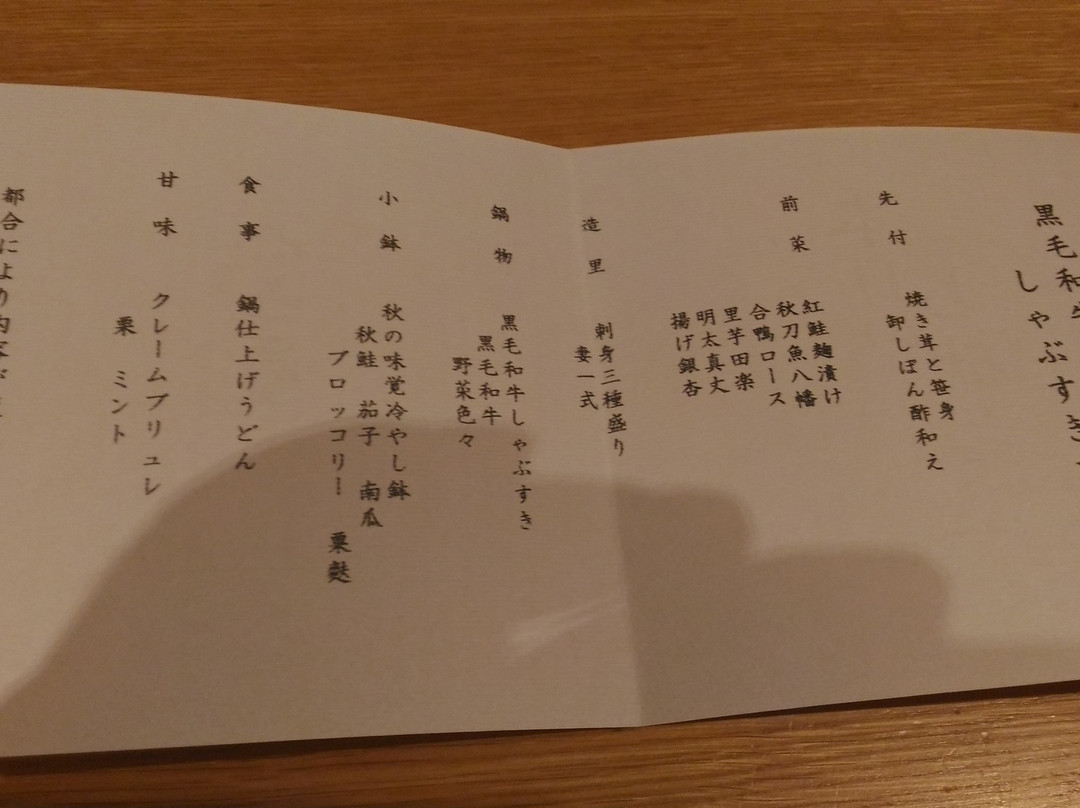 黒毛和牛
しゃぶすき
先付
焼き茸と笹身
卸しぽん酢和え
前菜
紅鮭麹漬け
秋刀魚八幡
合鴨ロース
里芋田楽
明太真丈
揚げ銀杏
造里
刺身三種盛り
妻一式
鍋物
黒毛和牛しゃぶすき
黒毛和牛
野菜色々
小鉢
秋の味覚冷やし鉢
秋鮭 茄子 南瓜
ブロッコリー 粟麩
食事
鍋仕上げうどん
甘味
クレームブリュレ
栗 ミント
都合により内容が